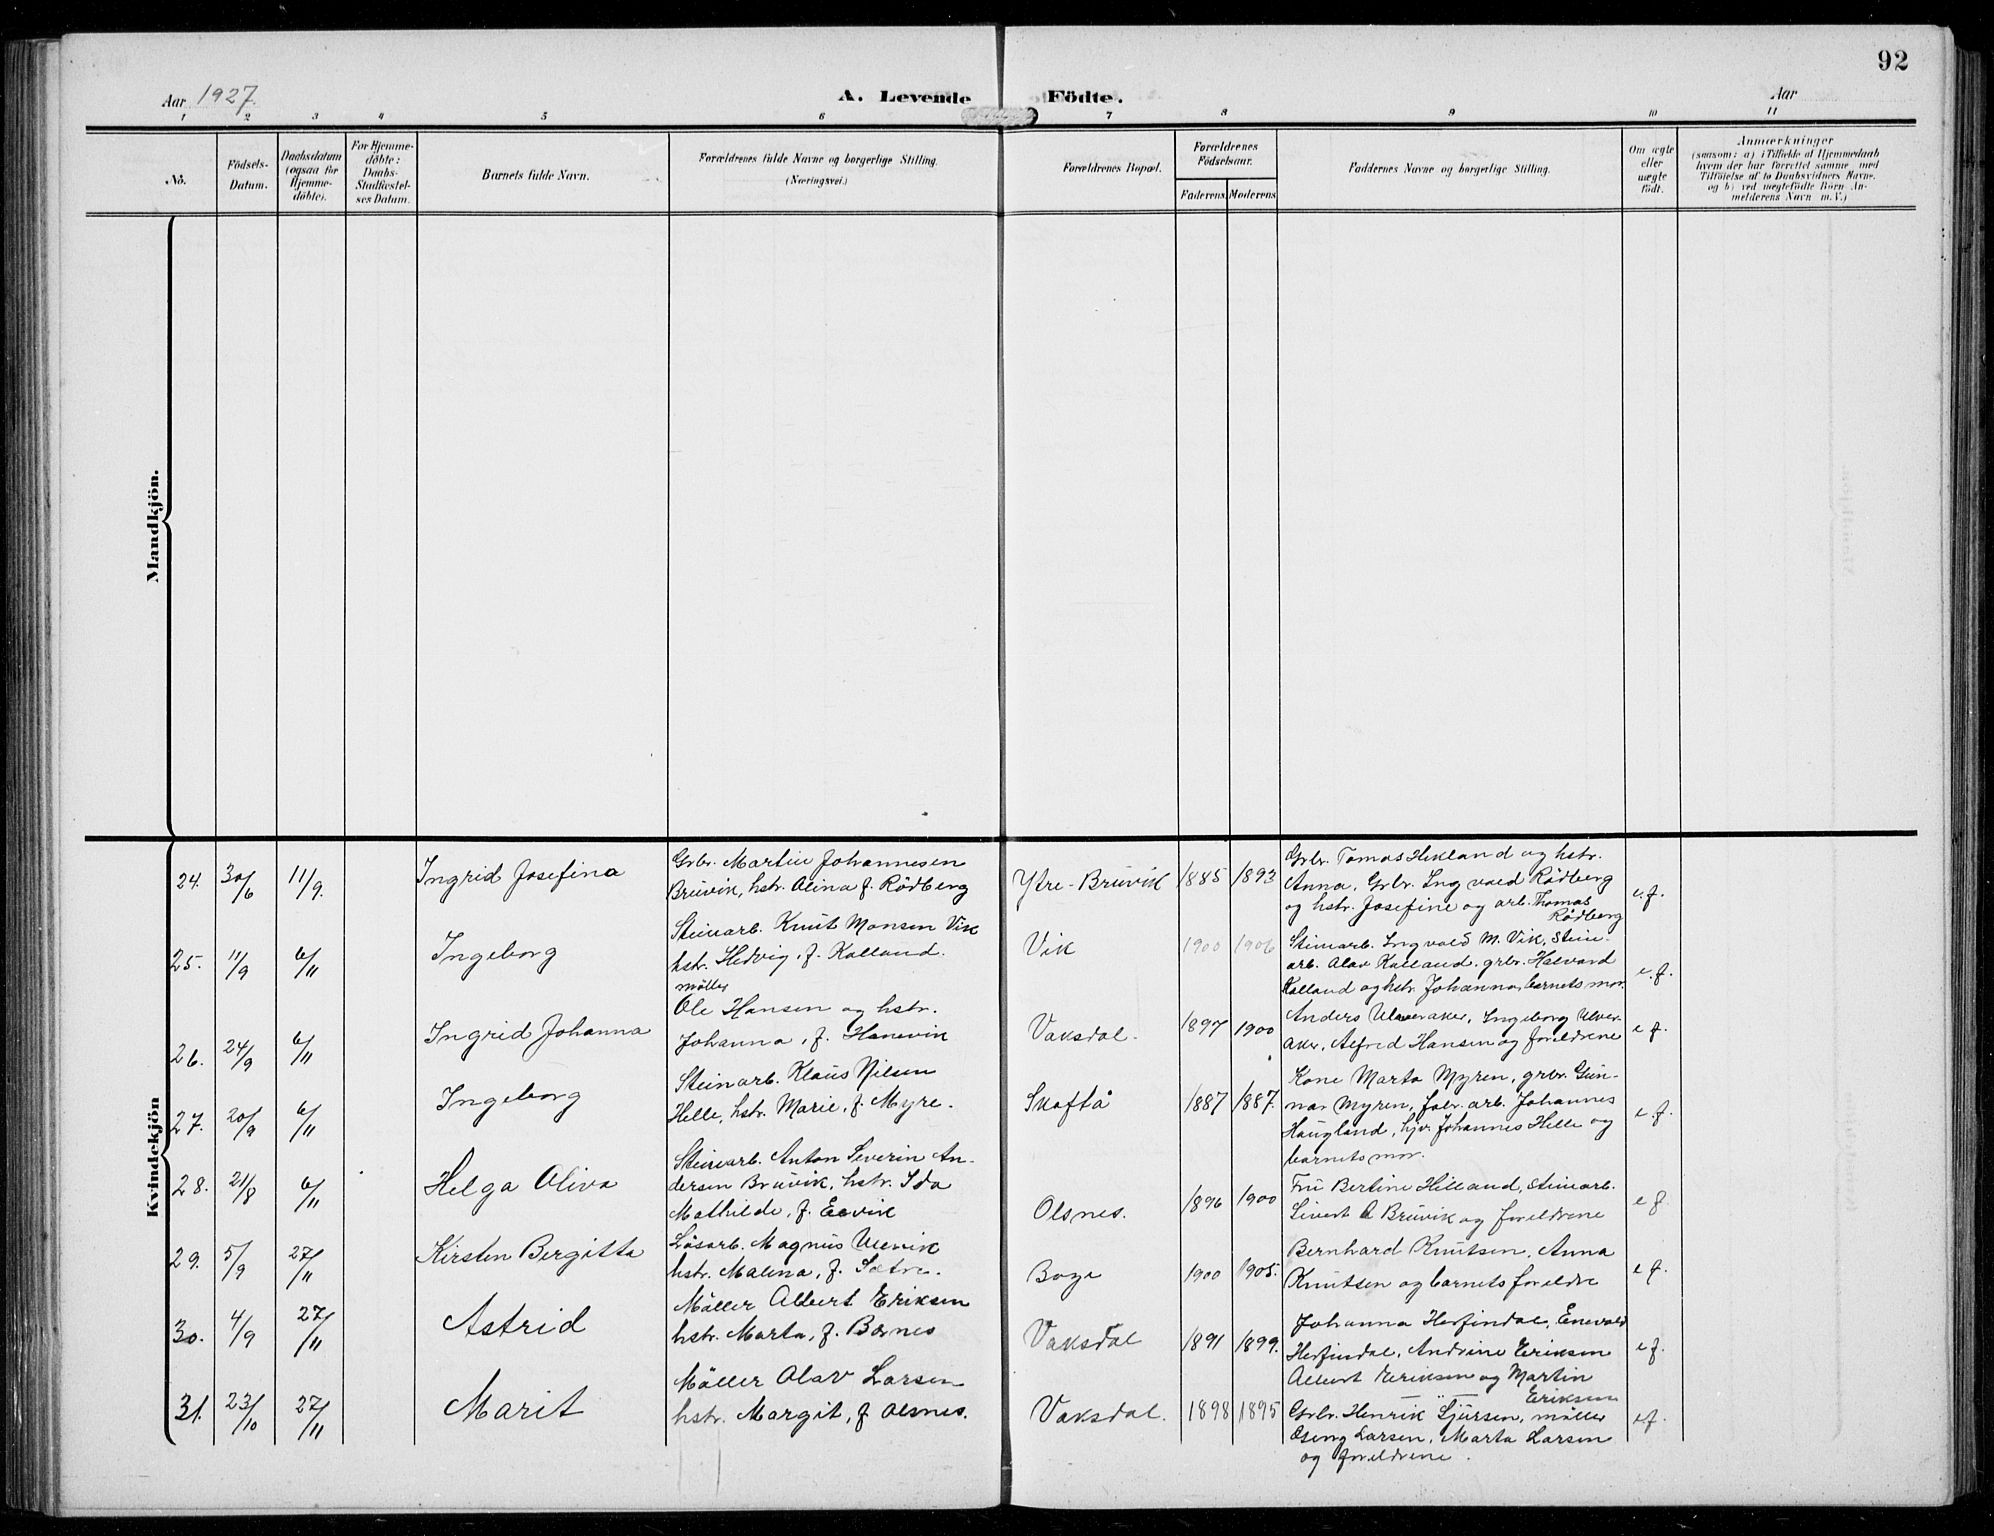 92
Aar 1927.
A. Levende Födte.
Aar
1 2 3 4 5 6 7 8 9 10 11
No.
Födsels-Datum.
Daabsdatum (ogsaa for Hjemme-døbte).
For Hjemme-døbte: Daabs-Stadfæstel-ses Datum.
Barnets fulde Navn.
Forældrenes fulde Navne og borgerlige Stilling.
(Næringsvei.)
Forældrenes Bopæl.
Forældrenes Fødselsaar.
Faderens. Moderens.
Faddernes Navne og borgerlige Stilling.
Om ægte eller uægte født.
Anmærkninger
(saasom: a) i Tilfælde af Hjemmedaab
hvem der har forrettet samme, med
Tilføielse af to Daabsvidners Navne.
og b) ved uægtefødte Børn An-
melderens Navn m. V.)
Mandkjön.
Kvindekjön
24. 30/6 11/9. Ingrid Josefina
Grbr. Martin Johannesen
Bruvik, hstr. Alina f. Rödberg
Ytre-Bruvik 1885 1893
Grbr. Tomas Hekland og hstr.
Anna, Grbr. Ingvald Rödberg
og hstr. Josefine og arb. Thomas
Rödberg
e.f.
25. 11/9 6/11 Ingeborg
Steinarb. Knut Monsen Vik
hstr. Hedvig, f. Kalland.
Vik 1900 1906
Steinarb. Ingvald M. Vik, Stein-
arb. Olav Kalland, grbr. Halvard
Kalland og hstr. Johanna, barnets mor.
e.f.
26. 24/9 6/11 Ingrid Johanna
møller
Ole Hansen og hstr.
Johanna, f. Hanevik
Vaksdal. 1897 1900
Anders Ulveraker, Ingeborg Ulver-
aker, Alfred Hansen og foreldrene
e f.
27. 20/9 6/11 Ingeborg
Steinarb. Klaus Nilsen
Helle, hstr. Marie, f. Myre.
Skoftå 1887 1887.
Kone Marta Myren, grbr. Gun-
nar Myren, fabr. arb. Johannes
Haugland, hjv. Johannes Helle og
barnets mor.
e.f.
28. 21/8 6/11 Helga Oliva
Steinarb. Anton Severin An-
dersen Bruvik, hstr. Ida
Mathilde, f. Eevik
Olsnes. 1896 1900
Fru Bertine Hilland, steinarb.
Sivert A Bruvik og foreldrene
e f.
29. 5/9 27/11 Kirsten Bergitta
Løsarb. Magnus Ulevik
hstr. Malena, f. Sætre.
Boge 1900 1905.
Bernhard Knutsen, Anna
Knutsen og barnets foreldre
e f.
30. 4/9 27/11 Astrid
Møller Albert Eriksen
hstr. Marta, f. Børnes
Vaksdal 1891 1899.
Johanna Herfindal, Enevald
Herfindal, Andrine Eriksen
Albert Eriksen og Martin
Eriksen
e f.
31. 23/10 27/11 Marit
Møller Olav Larsen
hstr. Margit, f Olsnes.
Vaksdal. 1898 1895
Grbr. Henrik Sjursen, møller
Larsen, Marta Larsen
og foreldrene.
e f.